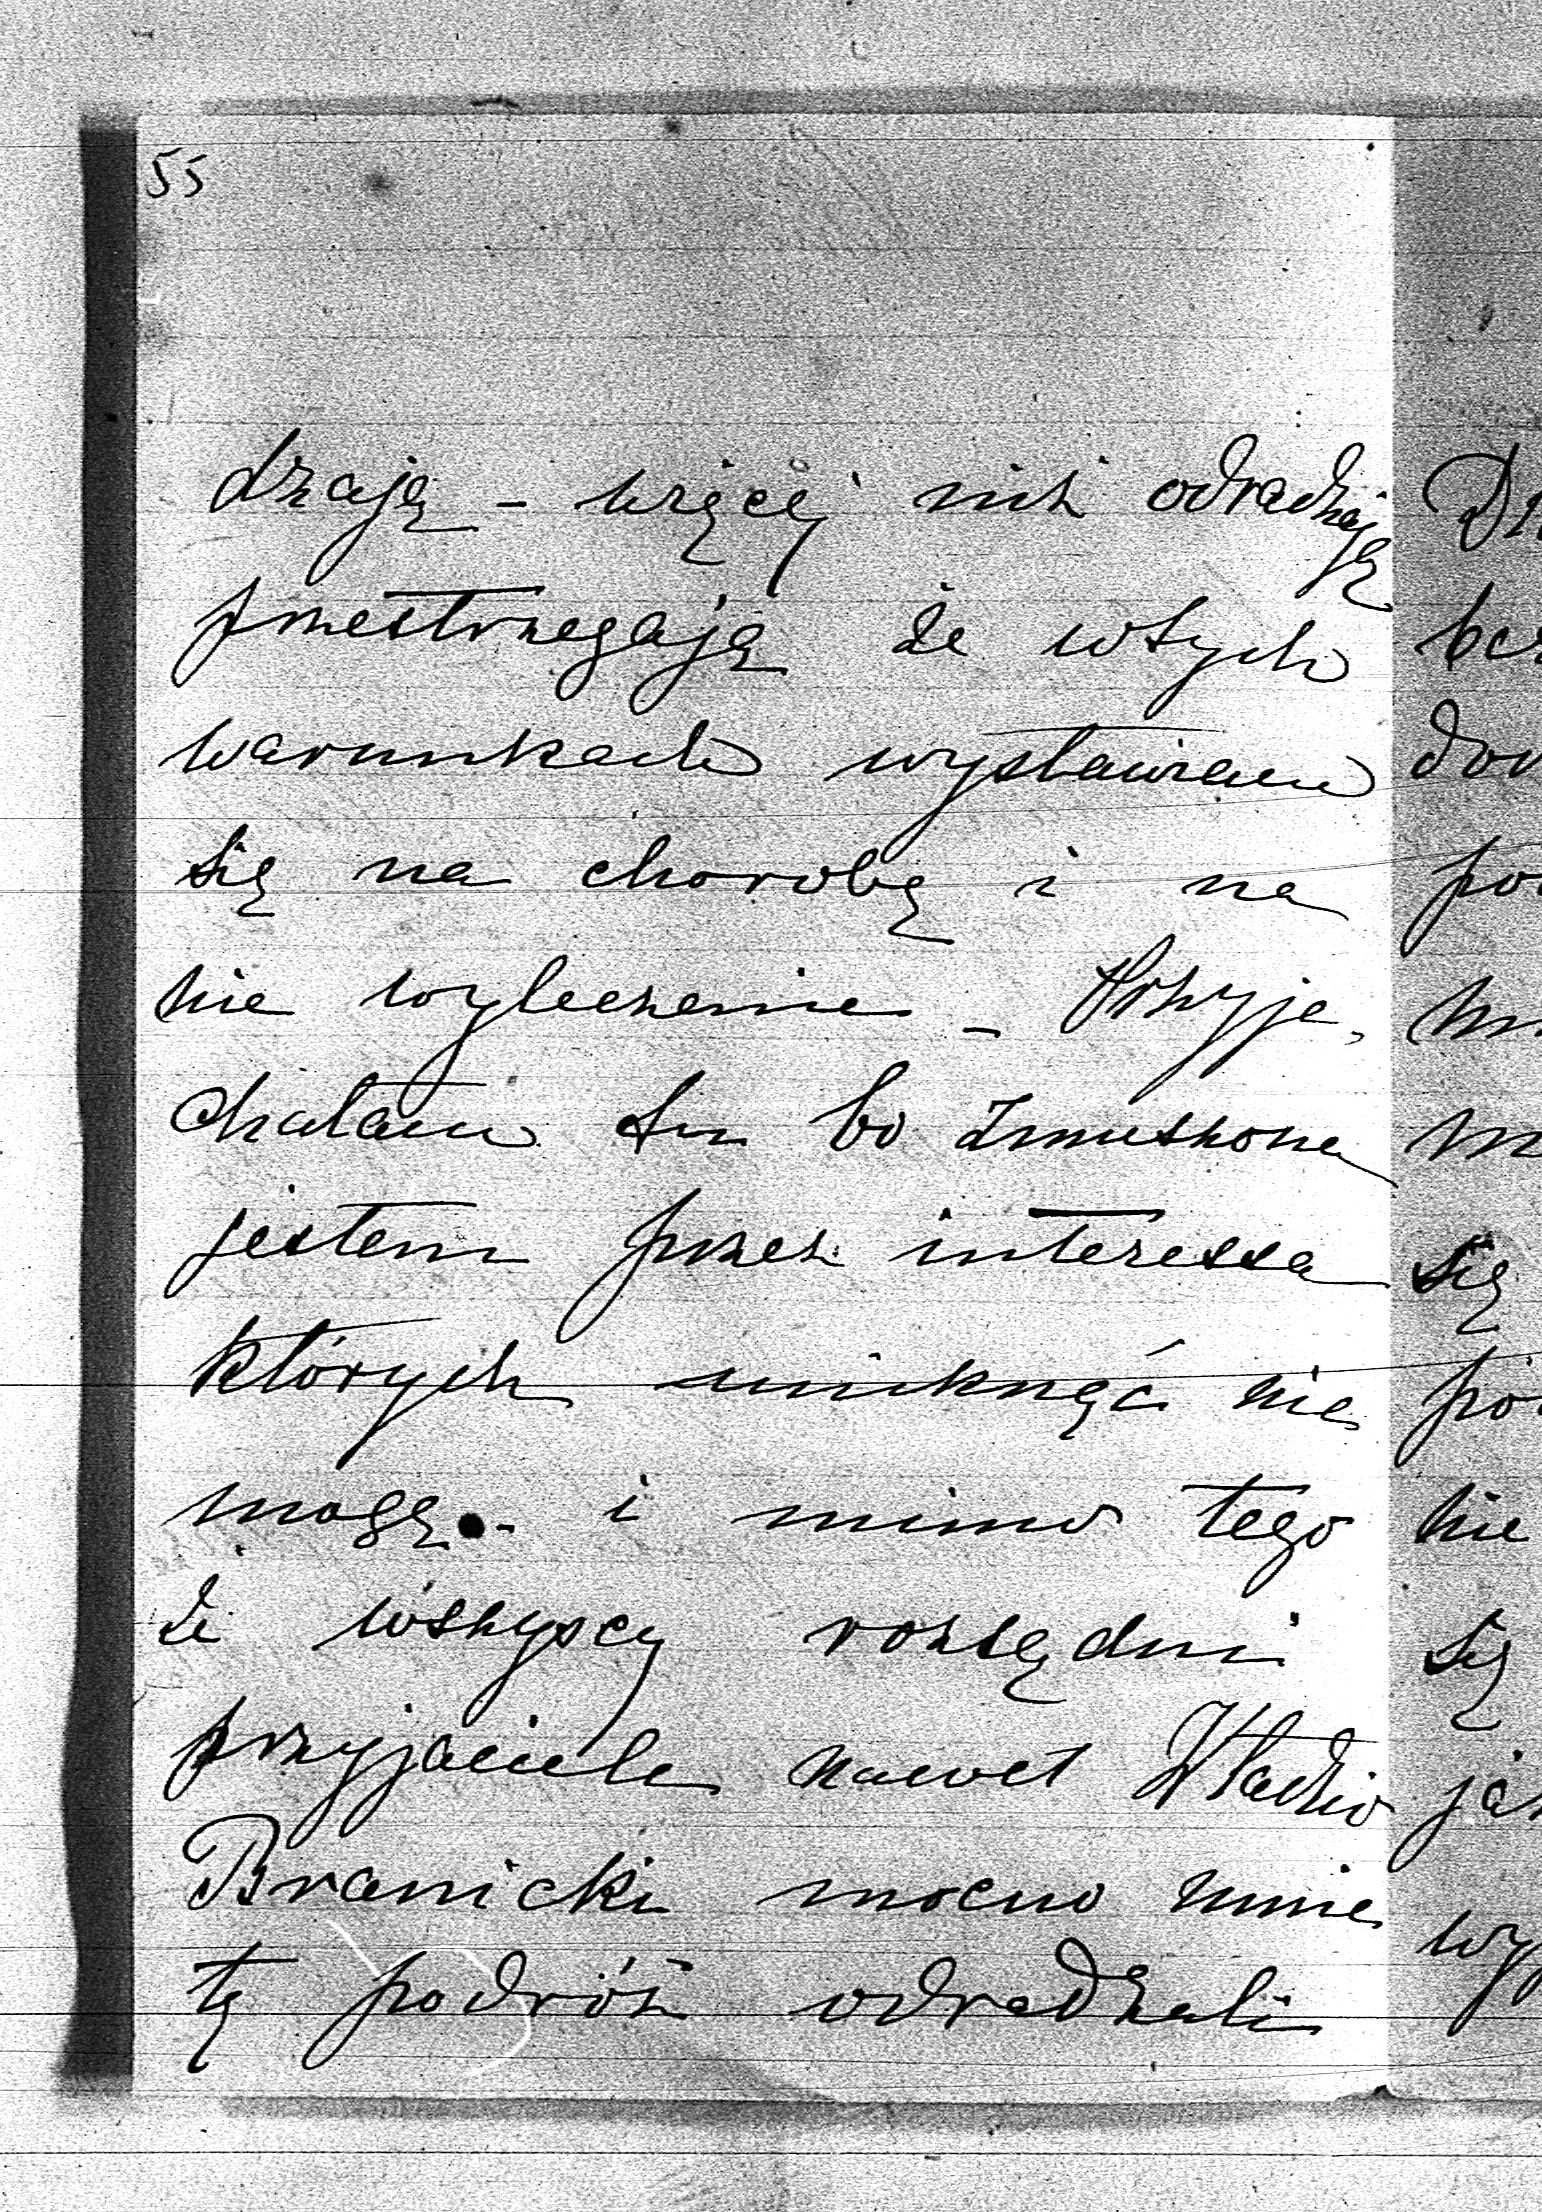 55
dzają - więcej niż odradzają
przestrzegają że w tych
warunkach wystawiam
się na chorobę i na
nie wyleczenie - Przyje-
chałam tu bo zmuszona
jestem przez interessa
których uniknąć nie
mogę - i mimo tego
że wszyscy rozsądni
przyjaciele nawet Władzio
Branicki mocno mnie
tę podróż odradzali